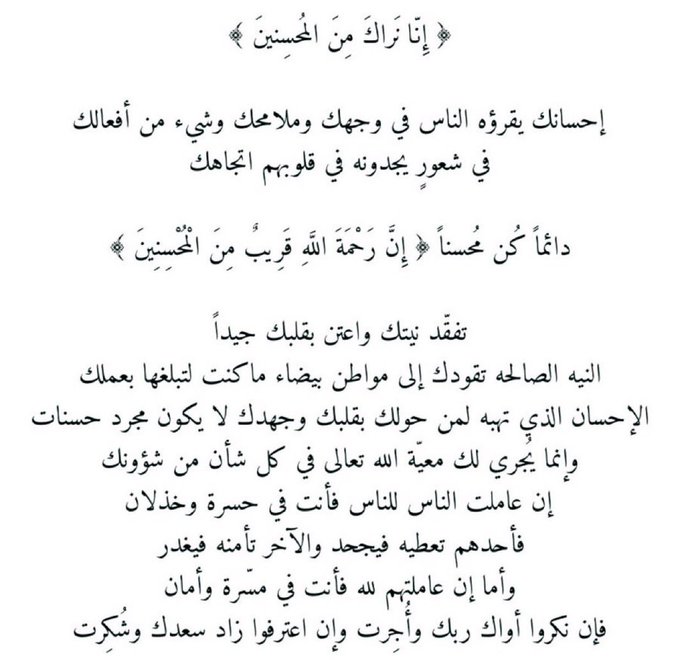 ﴿ إِنّا نَراكَ مِنَ المُحسِنينَ ﴾
إحسانك يقرؤه الناس في وجهك وملامحك وشيء من أفعالك
في شعورٍ يجدونه في قلوبهم اتجاهك
دائماً كُن مُحسناً ﴿ إِنَّ رَحْمَةَ اللَّهِ قَرِيبٌ مِنَ الْمُحْسِنِينَ ﴾
تفقّد نيتك واعتن بقلبك جيداً
النيه الصالحه تقودك إلى مواطن بيضاء ماكنت لتبلغها بعملك
الإحسان الذي تهبه لمن حولك بقلبك وجهدك لا يكون مجرد حسنات
وإنما يُجري لك معيّة الله تعالى في كل شأن من شؤونك
إن عاملت الناس للناس فأنت في حسرة وخذلان
فأحدهم تعطيه فيجحد والآخر تأمنه فيغدر
وأما إن عاملتهم لله فأنت في مسّرة وأمان
فإن نكروا أواك ربك وأُجِرت وإن اعترفوا زاد سعدك وشُكِرت